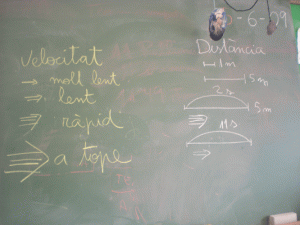 5-6-09
Velocitat
→ molt lent
⇒ lent
ràpid
a tope
Distància
1m
5m
2s
5m
11s